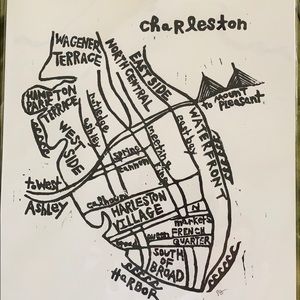 charleston
WAGENER
TERRACE
NORTH CENTRAL
EAST SIDE
HAMPTON
PARK
TERRACE
WEST SIDE
rutledge
ashley
to mount
pleasant
WATERFRONT
meeting
king
east bay
spring
cannon
to West
Ashley
calhoun
HARLESTON
VILLAGE
N
market
FRENCH
QUARTER
queen
broad
SOUTH
OF
BROAD
HARBOR